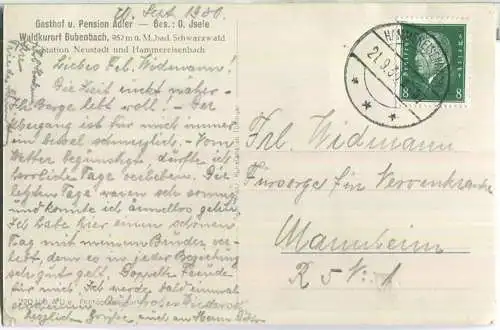 20. Sept. 1930.
Gasthof u. Pension Adler — Bes.: O. Jsele
Waldkurort Bubenbach, 952 m ü. M., bad. Schwarzwald
Station Neustadt und Hammereisenbach
Liebes Frl. Widmann!
Die Zeit rückt näher -
Ihr Berge lebt wohl! - Der
Übergang ist für mich immer
ein bissel schmerzlich. - Vom
Wetter begünstigt, durfte ich
herrliche Tage verleben. Die
letzten Tage waren sonnig
und konnte ich ärmellos gehen.
Ich habe hier einen schönen
Tag mit meinem Bruder ver-
lebt, dem es in jeder Beziehung
sehr gut geht. Doppelte Freude
für mich. Ich werde bald einmal
Auf frohes Wiederseh
Herzlich Grüße, auch an Herrn
21.9.30
DEUTSCHES REICH
8 8
Frl. Widmann
Fürsorge für Nervenkranke
Mannheim
R 5 No. 1